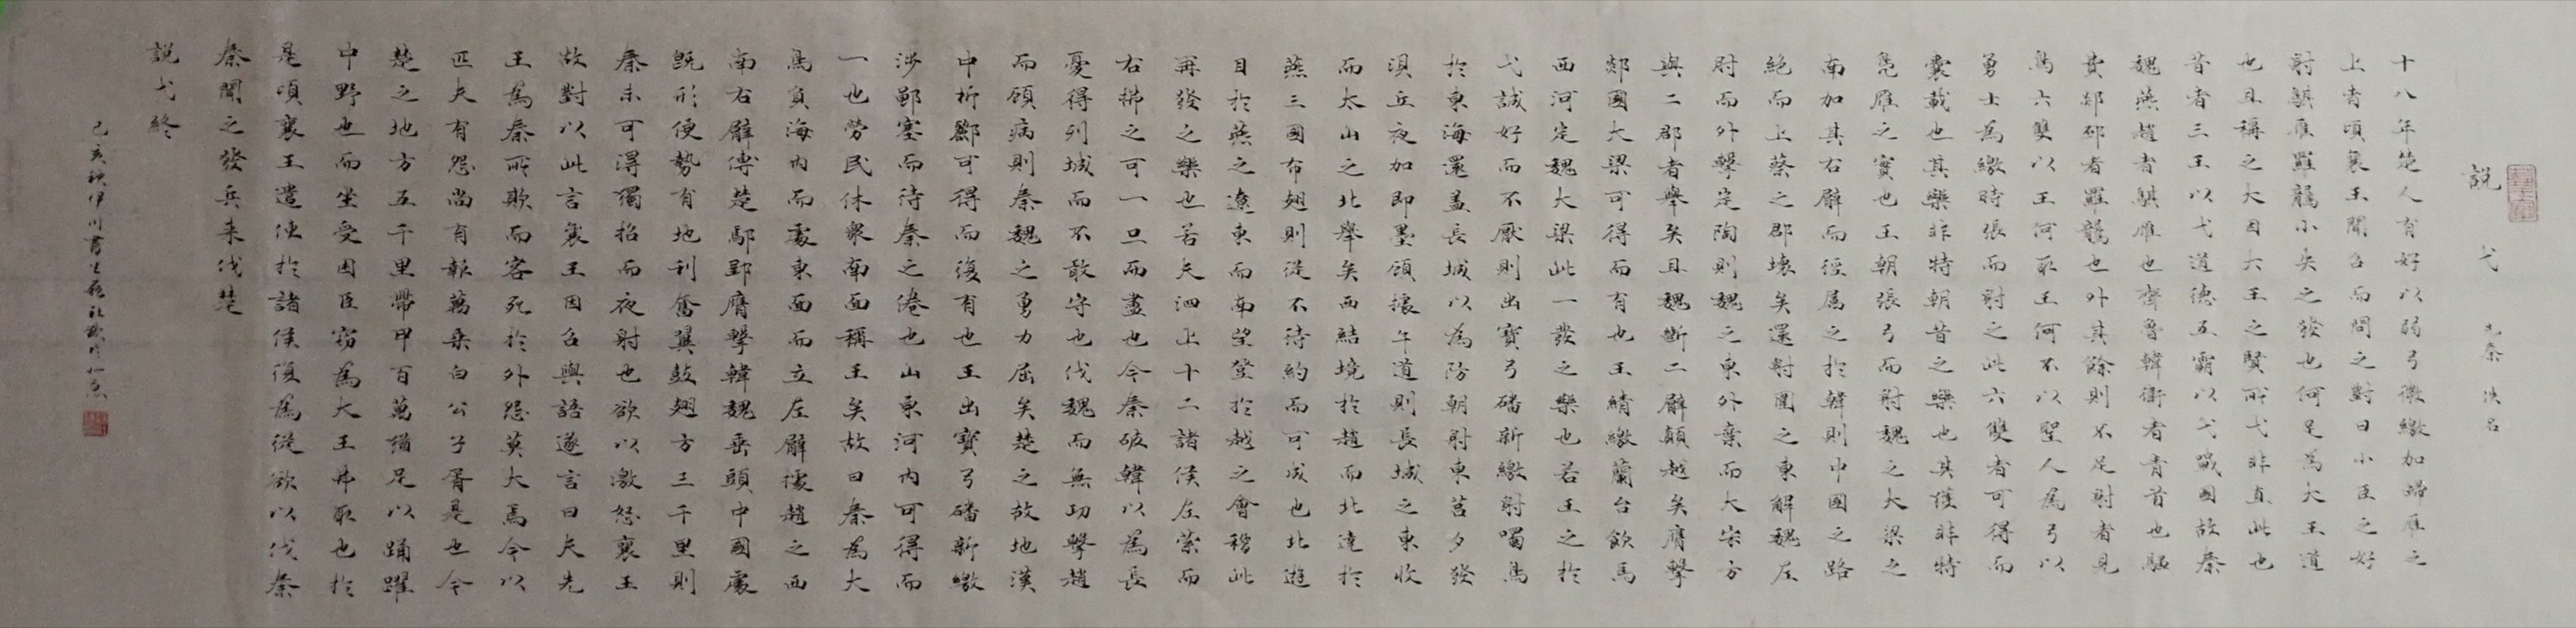 説弋 先秦 佚名
十八年楚人有好以弱弓微繳加歸雁之
上者頃襄王聞召而問之對曰小臣之好
射鶀雁羅鸗小矢之發也何足爲大王道
也且稱之大因大王之賢所弋非直此也
昔者三王以弋道德五霸以弋戰國故秦
魏燕趙者鶀雁也齊魯韓衛者青首也騶
費郯邳者羅鸗也外其餘則不足射者見
鳥六雙以王何取王何不以聖人爲弓以
勇士爲繳時張而射之此六雙者可得而
囊載也其樂非特朝昔之樂也其獲非特
鳧雁之實也王朝張弓而射魏之大梁之
南加其右臂而徑屬之於韓則中國之路
絕而上蔡之郡壞矣還射圉之東解魏左
肘而外擊定陶則魏之東外棄而大宋方
與二郡者舉矣且魏斷二臂顛越矣膺擊
郯國大梁可得而有也王綪繳蘭台飲馬
西河定魏大梁此一發之樂也若王之於
弋誠好而不厭則出寶弓碆新繳射噣鳥
於東海還蓋長城以爲防朝射東莒夕發
浿丘夜加即墨顧據午道則長城之東收
而太山之北舉矣西結境於趙而北達於
燕三國布翅則從不待約而可成也北遊
目於燕之遼東而南望登於越之會稽此
再發之樂也若夫泗上十二諸侯左縈而
右拂之可一旦而盡也今秦破韓以爲長
憂得列城而不敢守也伐魏而無功擊趙
而顧病則秦魏之勇力屈矣楚之故地漢
中析酈可得而復有也王出寶弓碆新繳
涉鄳塞而待秦之倦也山東河內可得而
一也勞民休衆南面稱王矣故曰秦爲大
鳥負海內而處東面而立左臂據趙之西
南右臂傅楚鄢郢膺擊韓魏垂頭中國處
既形便勢有地利奮翼鼓翅方三千里則
秦未可得獨招而夜射也欲以激怒襄王
故對以此言襄王因召與語遂言曰夫先
王爲秦所欺而客死於外怨莫大焉今以
匹夫有怨尚有報萬乘白公子胥是也今
楚之地方五千里帶甲百萬猶足以踊躍
中野也而坐受困臣竊爲大王弗取也於
是頃襄王遣使於諸侯復爲從欲以伐秦
秦聞之發兵來伐楚
説弋終
己亥秋伊川書生